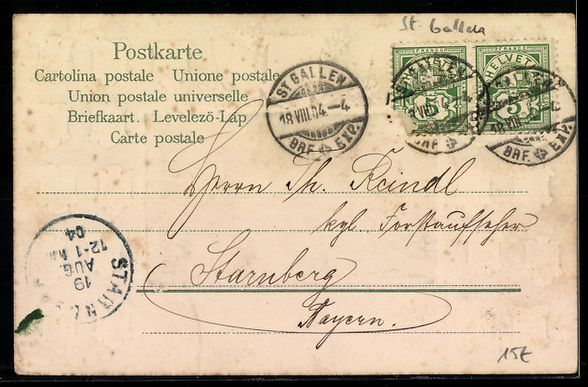 St. Gallen
Postkarte
Cartolina postale Unione postale
Union postale universelle
Briefkaart. Levelezö-Lap
Carte postale
ST GALLEN
18.VIII.04.–4
BRF. EXP.
FRANCO
HELVETIA
5
FRANCO
HELVETIA
5
Herrn Th. Reindl
kgl. Forstaufseher
Starnberg
Bayern.
STARN
19
AUG
12-1
04
15€